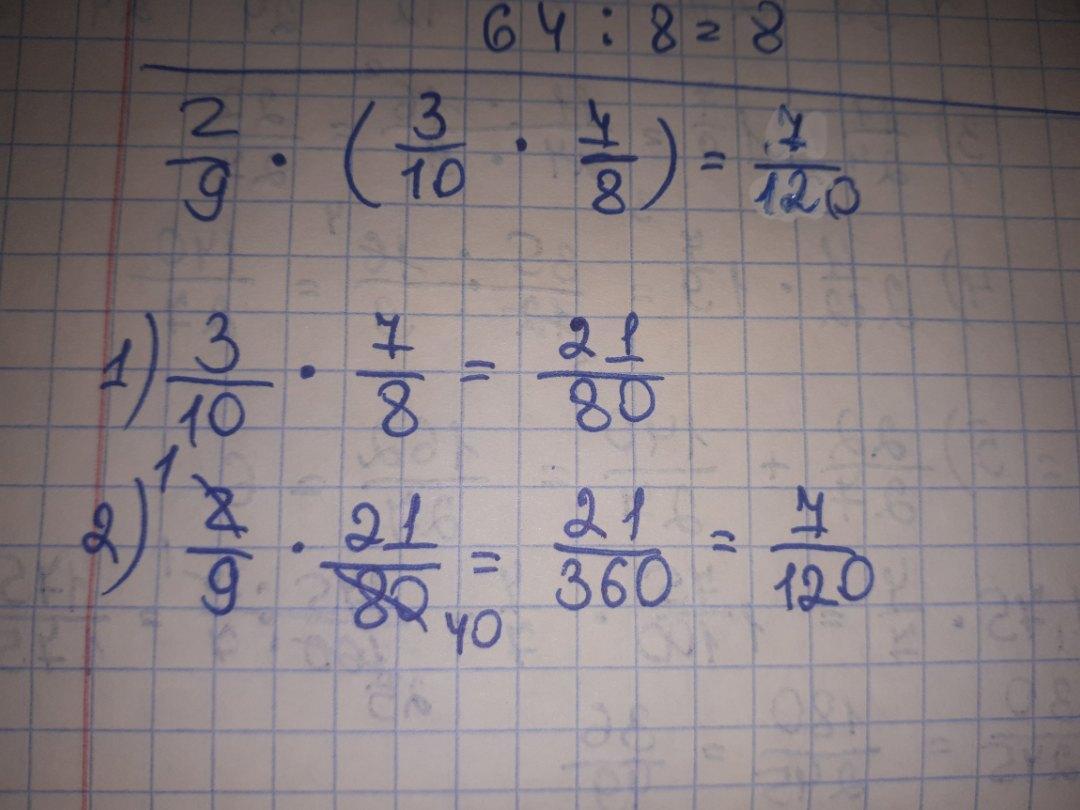 64 : 8 = 8
2/9 · (3/10 · 7/8) = 7/120
1) 3/10 · 7/8 = 21/80
2) 1 2/9 · 21/80 40 = 21/360 = 7/120